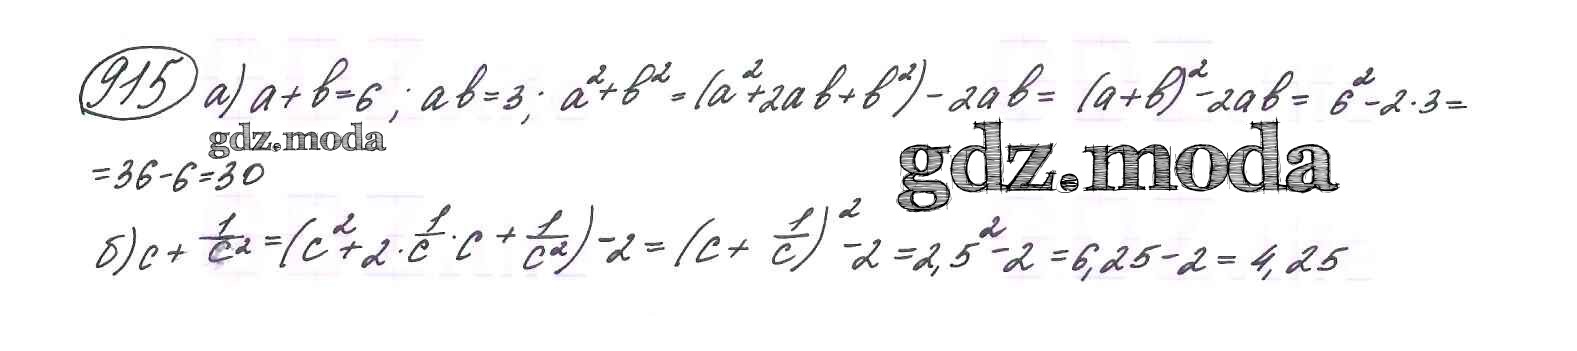 915 а) a+b=6; ab=3; a²+b²=(a²+2ab+b²)-2ab=(a+b)²-2ab=6²-2·3=
gdz.moda
gdz.moda
=36-6=30
б) c+1/c²=(c²+2·1/c·c+1/c²)-2=(c+1/c)²-2=2,5²-2=6,25-2=4,25